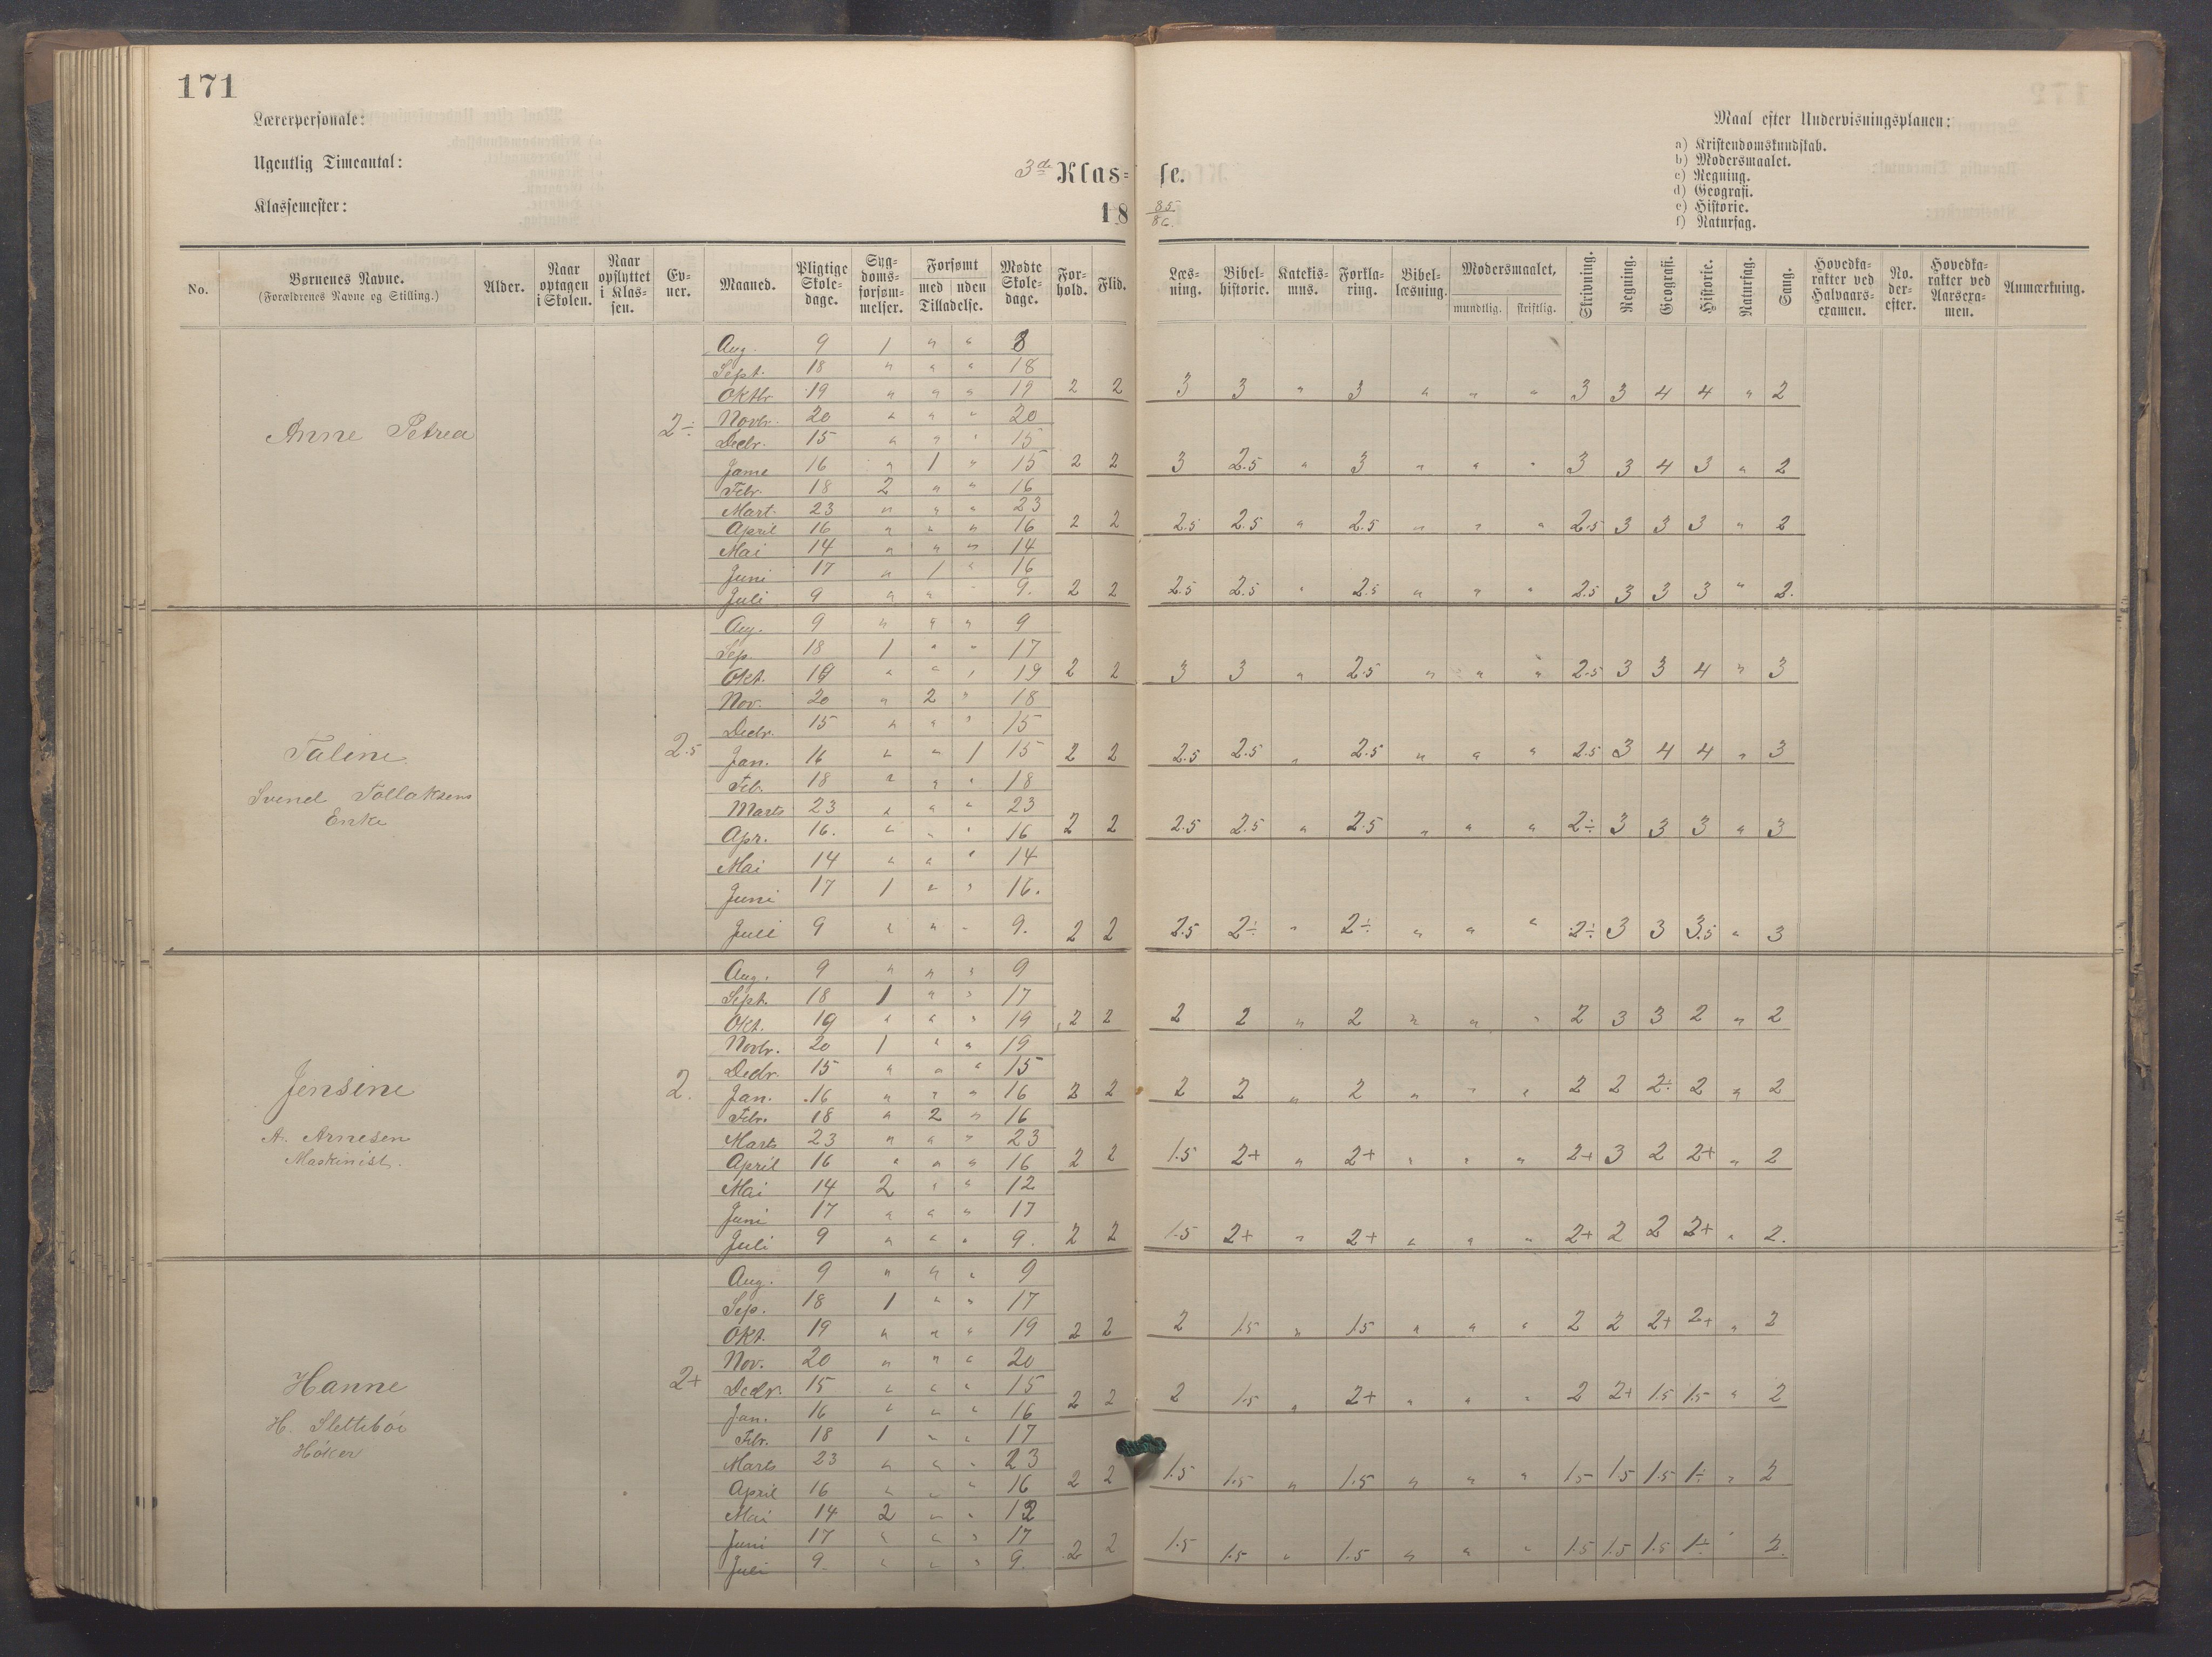 171
Lærerpersonale:
Ugentlig Timeantal:
Klassemester:
3de Klas= se.
18 85/86
Maal efter Undervisningsplanen:
a) Kristendomskundskab.
b) Modersmaalet.
c) Regning.
d) Geografi.
e) Historie.
f) Naturfag.
No. | Børnenes Navne. (Forældrenes Navne og Stilling.) | Alder. | Naar optagen i Skolen. | Naar opflyttet i Klas=sen. | Ev=ner. | Maaned. | Pligtige Skole=dage. | Syg=doms=forsøm=melser. | Forsømt med uden Tilladelse. | Mødte Skole=dage. | For=hold. | Flid. | Læs=ning. | Bibel=historie. | Katekis=mus. | Forkla=ring. | Bibel=læsning. | Modersmaalet, mundtlig. skriftlig. | Skrivning. | Regning. | Geografi. | Historie. | Naturfag. | Sang. | Hovedka=rakter ved Halvaars=examen. | No. der=efter. | Hovedka=rakter ved Aarsexa=men. | Anmærkning.
Aug. 9 1 " " 8
Sept. 18 " " " 18
Oktbr 19 " " " 19 2 2 3 3 " 3 " " " 3 3 4 4 " 2
Novbr. 20 " " " 20
Anne Petrea 2÷
Decbr. 15 " " " 15
16 " 1 " 15 2 2 3 2.5 " 3 " " " 3 3 4 3 " 2
Febr. 18 2 " " 16
Mart. 23 " " " 23
April 16 " " " 16 2 2 2.5 2.5 " 2.5 " " " 2.5 3 3 3 " 2
Mai 14 " " " 14
Juni 17 " 1 " 16
Juli 9 " " - 9. 2 2 2.5 2.5 " 2.5 " " " 2.5 3 3 3 " 2.
Aug. 9 " " " 9
Sep. 18 1 " " 17
Okt. 19 " " " 19 2 2 3 3 " 2.5 " " " 2.5 3 3 4 " 3
Nov. 20 " 2 " 18
Decbr. 15 " " " 15
Taline 2.5
Jan. 16 " " 1 15 2 2 2.5 2.5 " 2.5 " " " 2.5 3 4 4 " 3
Feb. 18 " " " 18
Svend Tollaksens
Marts 23 " " " 23
Enke
Apr. 16. " " " 16 2 2 2.5 2.5 " 2.5 " " " 2÷ 3 3 3 " 3
Mai 14 " " " 14
Juni 17 1 " " 16.
Juli 9 " " - 9. 2 2 2.5 2÷ " 2÷ " " " 2÷ 3 3 3.5 " 3
Aug. 9 " " " 9
Sept. 18 1 " " 17
Okt. 19 " " " 19 2 2 2 2 " 2 " " " 2 3 3 2 " 2
Novbr. 20 1 " " 19
Decbr. 15 " " " 15
Jensine 2.
Jan. 16 " " " 16 2 2 2 2 " 2 " " " 2 2 2÷ 2 " 2
Febr. 18 " 2 " 16
A. Arnesen
Marts 23 " " " 23
Maskinist.
April 16 " " " 16 2 2 1.5 2+ " 2+ " " " 2+ 3 2 2+ " 2
Mai 14 2 " " 12
Juni 17 " " " 17
Juli 9 " " " 9. 2 2 1.5 2+ " 2+ " " " 2+ 2 2 2+ " 2.
Aug. 9 " " " 9
Sep. 18 1 " " 17
Okt. 19 " " " 19 2 2 2 1.5 " 1.5 " " " 2 2 2+ 2+ " 2
Nov. 20 " " " 20
Hanne 2+
Decbr. 15 " " " 15
Jan. 16 " " " 16 2 2 2 1.5 " 2+ " " " 2 2+ 1.5 1.5 " 2
H. Slettebøe
Febr. 18 1 " " 17
Høker
Marts 23 " " " 23
April 16 " " " 16 2 2 1.5 1.5 " 1.5 " " " 1.5 1.5 1.5 1÷ " 2
Mai 14 2 " " 12
Juni 17 " " " 17
Juli 9. " " " 9. 2 2 1.5 1.5 " 1.5 " " " 1.5 1.5 1.5 1÷ 2.